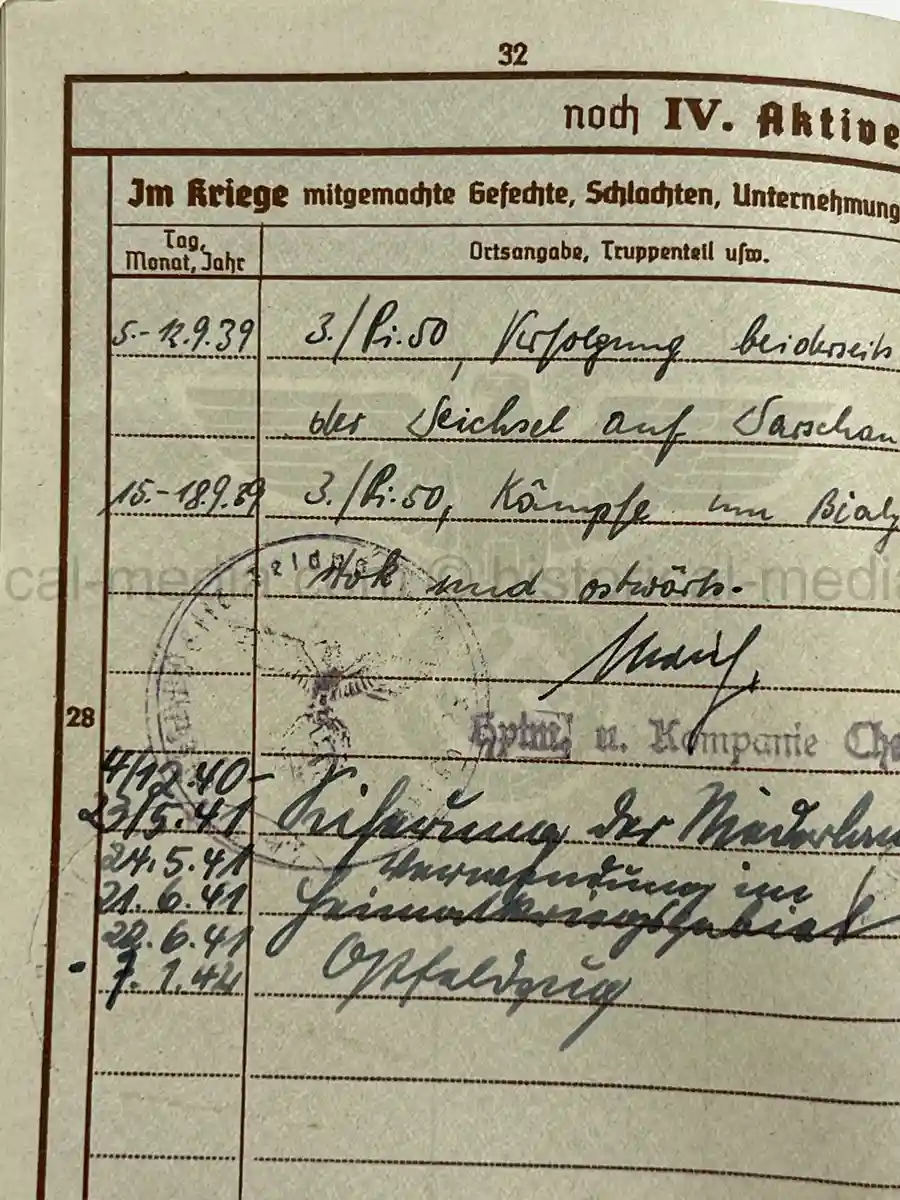 32
noch IV. Aktive
Im Kriege mitgemachte Gefechte, Schlachten, Unternehmung
Tag, Monat, Jahr
Ortsangabe, Truppenteil usw.
5.-12.9.39 3./Pi.50, Verfolgung beiderseits
der Weichsel auf Warschau
15.-18.9.39 3./Pi.50, Kämpfe um Bialy
stok und ostwärts.
Hptm. u. Kompanie Che
28
4/12.40-
23/5.41 Sicherung der Niederlan
24.5.41 Verwendung im
21.6.41 Heimatkriegsgebiet
22.6.41
7.1.42 Ostfeldzug
cal-media.com © historical-media